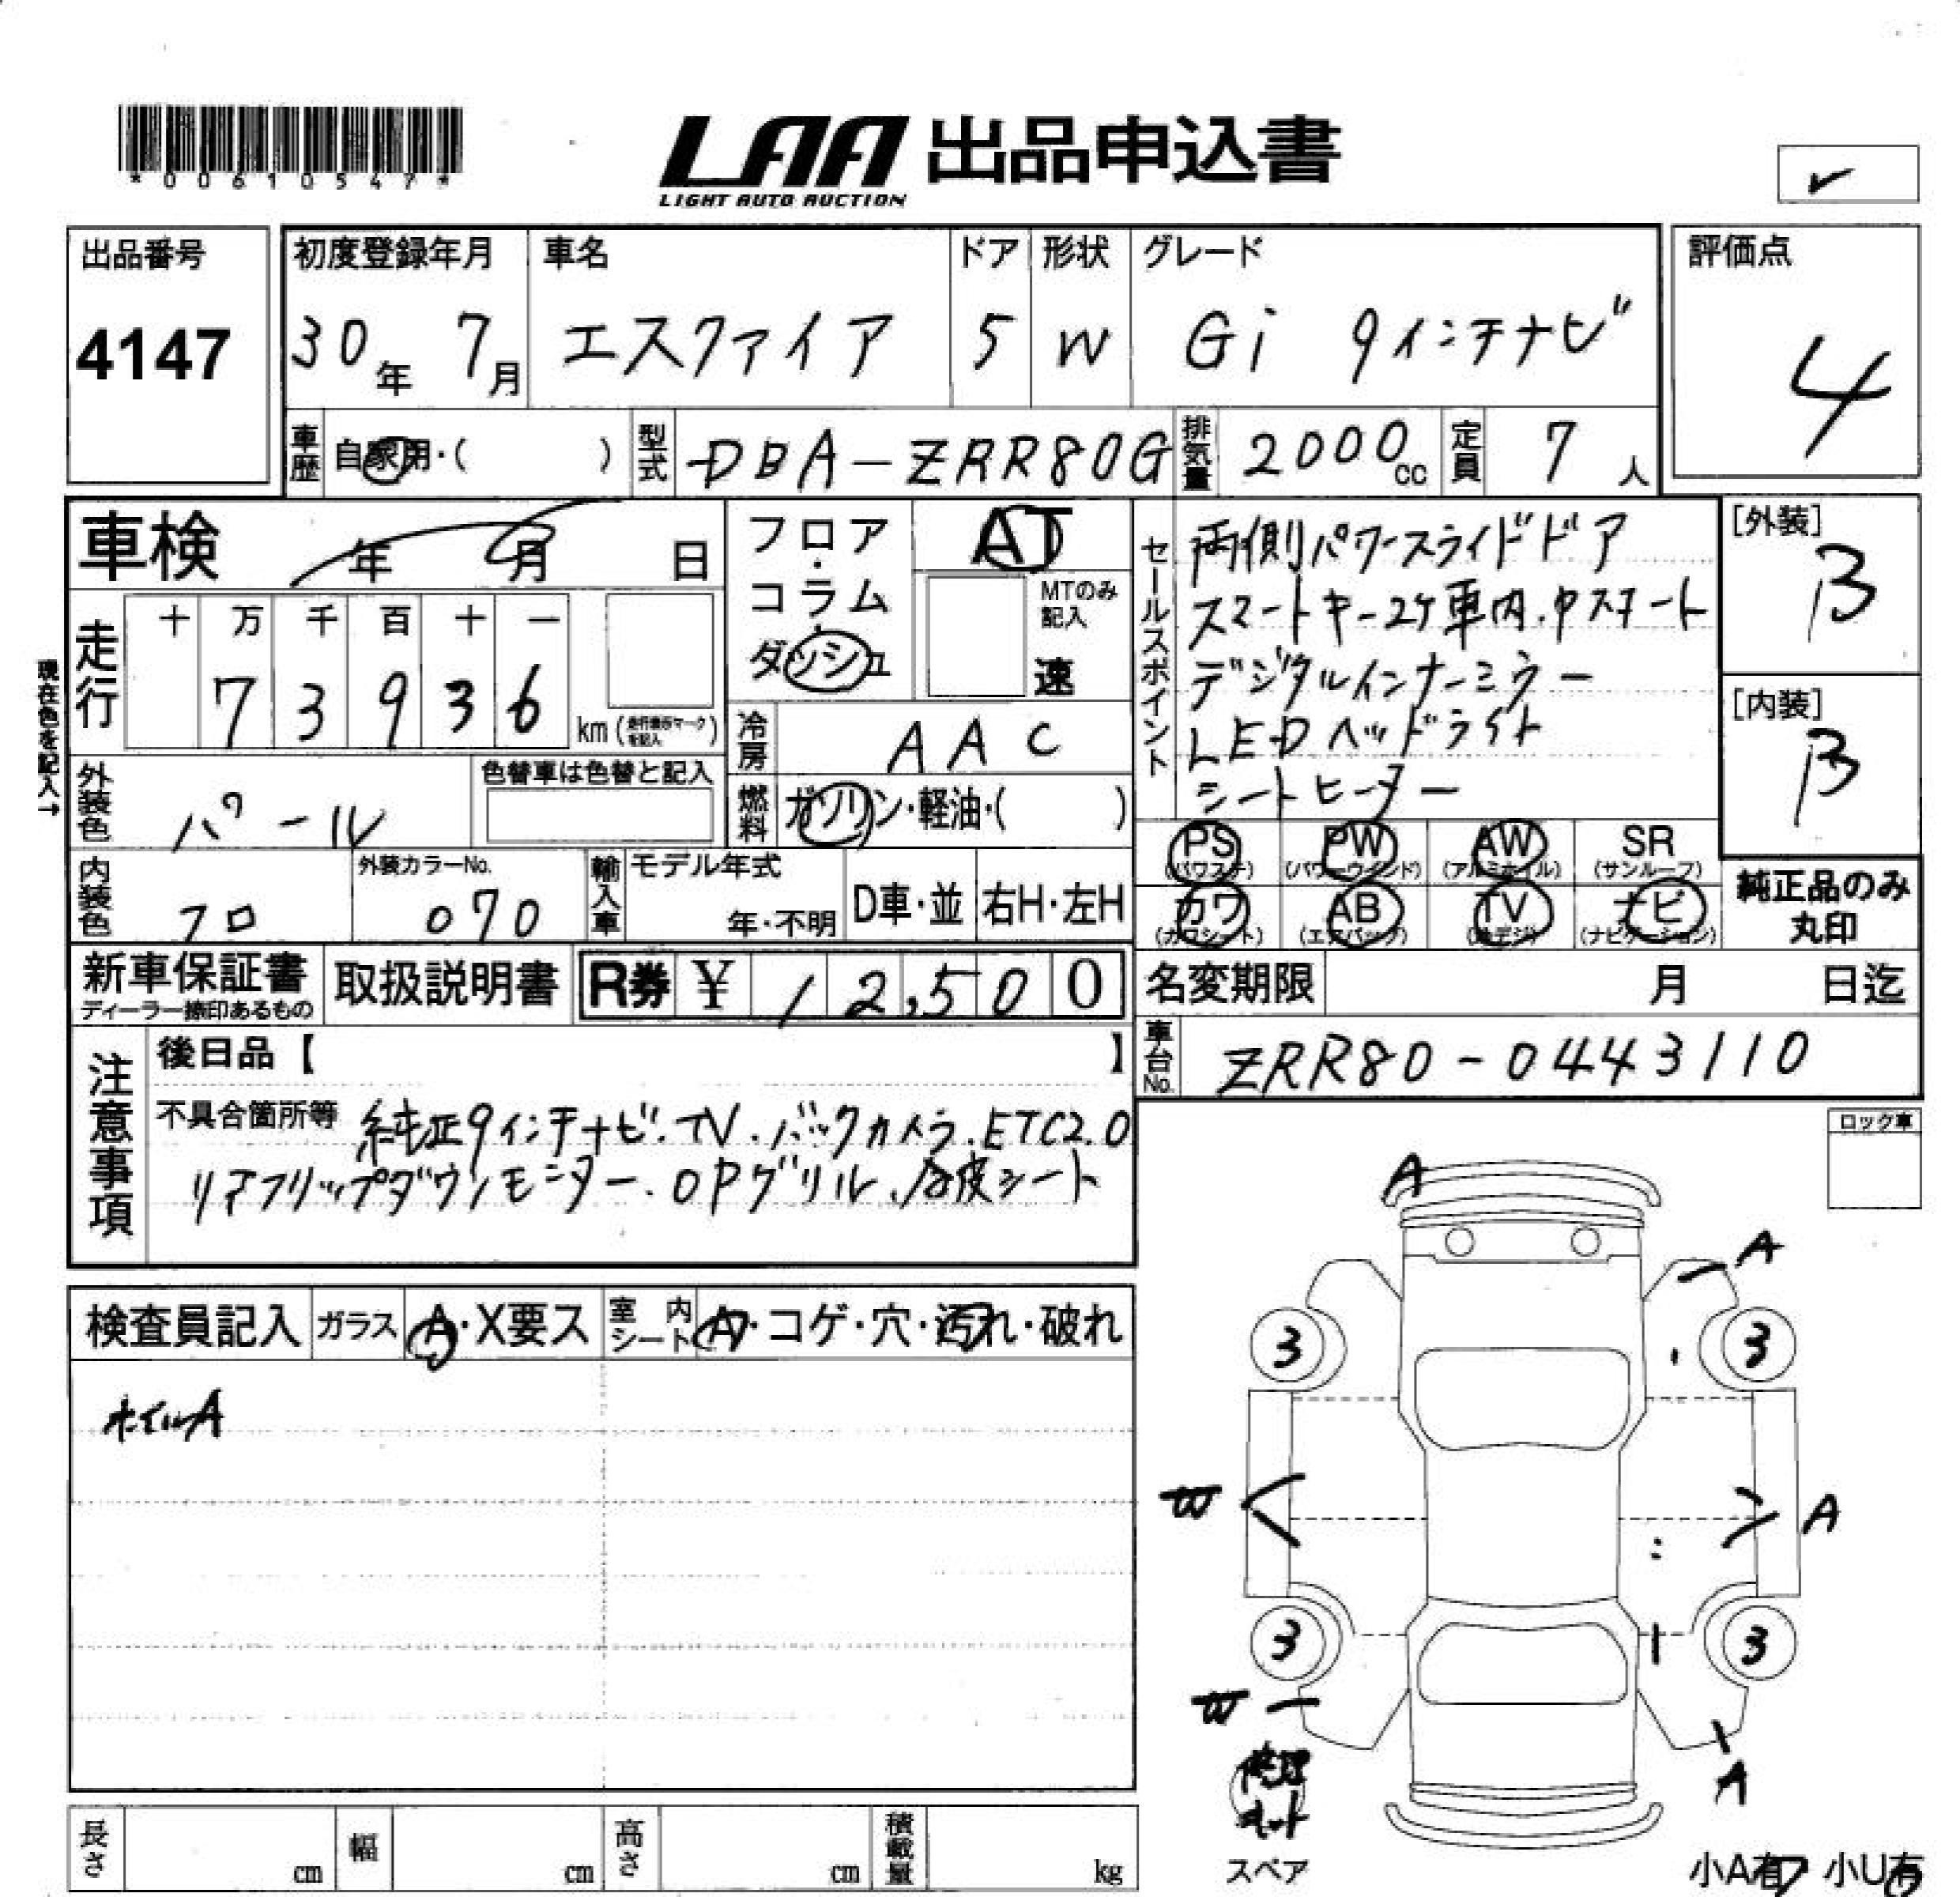 *00610547*
LAA 出品申込書
LIGHT AUTO AUCTION
出品番号
4147
初度登録年月
30年 7月
車名
エスクァイア
ドア
5
形状
W
グレード
Gi 9インチナビ
評価点
4
車歴 自家用・( )
型式 DBA-ZRR80G
排気量 2000cc
定員 7人
車検 年 月 日
フロア・コラム・ダッシュ
AT
MTのみ記入
速
セールスポイント
両側パワースライドドア
スマートキー2ケ車内.Pスタート
デジタルインナーミラー
LEDヘッドライト
シートヒーター
[外装]
B
[内装]
B
現在色を記入→
走行
十 万 千 百 十 一
7 3 9 3 6
km(走行表示マークを記入)
冷房 AAC
外装色 パール
色替車は色替と記入
燃料 ガソリン・軽油・( )
PS (パワステ)
PW (パワーウインド)
AW (アルミホイル)
SR (サンルーフ)
カワ (カワシート)
AB (エアバック)
TV (地デジ)
ナビ (ナビゲーション)
純正品のみ
丸印
内装色 クロ
外装カラーNo.
070
輸入車 モデル年式
年・不明
D車・並
右H・左H
新車保証書
ディーラー捺印あるもの
取扱説明書
R券 ¥ 12,500
名変期限 月 日迄
車台No. ZRR80-0443110
注意事項
後日品【 】
不具合箇所等 純正9インチナビ.TV.バックカメラ.ETC2.0
リアフリップダウンモニター.OPグリル.合皮シート
ロック車
検査員記入
ガラス A・X要ス
室内シート A・コゲ・穴・汚れ・破れ
ホイルA
A
A
3 3
W A
3 3
W
A
修理
キット
スペア
小A有 小U有
長さ cm
幅 cm
高さ cm
積載量 kg